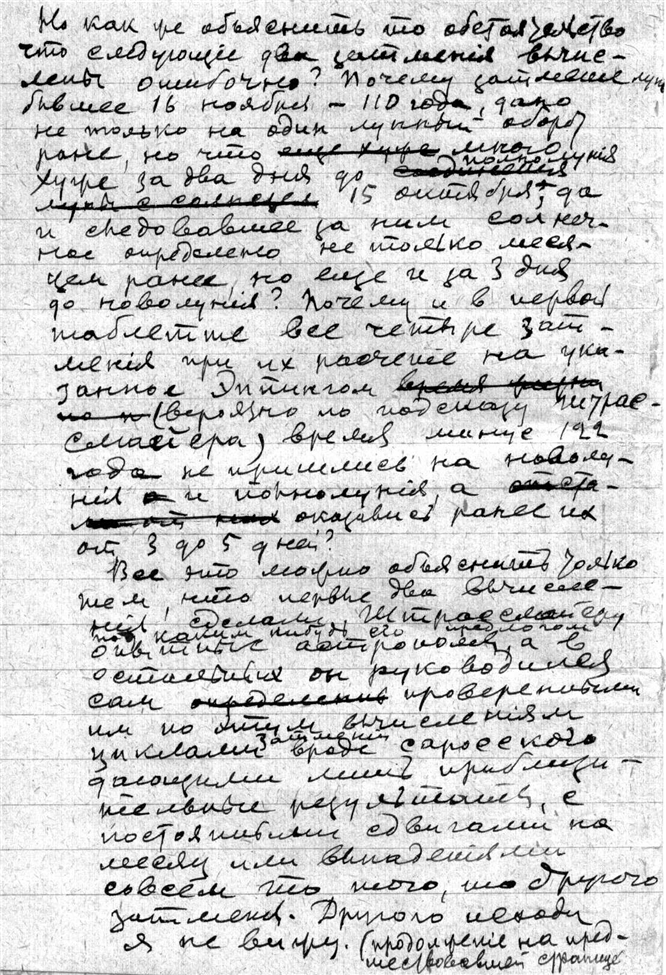 Но как же объяснить то обстоятельство
что следующие два затмения вычис-
лены ошибочно? Почему затмение луны
бывшее 16 ноября – 110 года, дано
не только на один лунный оборот
ране, но что еще хуже много
хуже за два дня до соединения полнолунія
луны с солнцем 15 октября, да
и следовавшее за ним солнеч-
ное определено не только меся-
цем ранее, но еще и за 3 дня
до новолунія? Почему и в первой
таблетке все четыре зат-
менія при их расчете на ука-
занное Эппингом время
(вероятно по подсказу Штрас-
смайера) время минус 122
года не пришлись на новолу-
нія и полнолунія, а отста-
ли от них оказались ранее их
от 3 до 5 дней?
Все это можно объяснить только
тем, что первые два вычисле-
нія сделали Штрассмайеру
под каким нибудь его предлогом
опытные астрономы, а в
остальных он руководился
сам определениями проверенными
им по этим вычислениям
циклами затменій вроде саросского
дающими лишь приблизи-
тельные результаты, с
постоянными сдвигами на
месяц или выпаденіями
совсем то того, то другого
затменія. Другого исхода
я не вижу. (продолженіе на пред-
шествовавшей странице